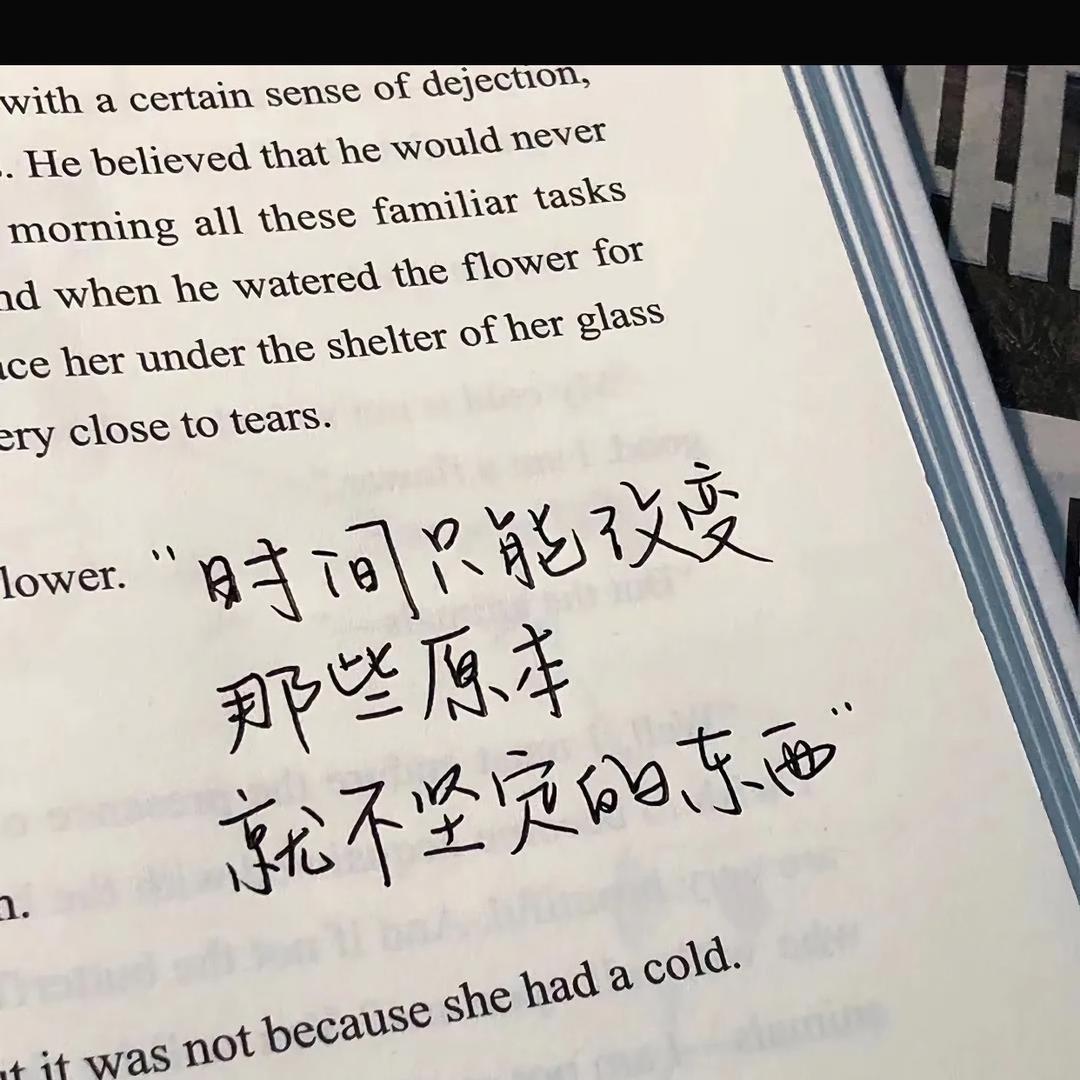 with a certain sense of dejection,
. He believed that he would never
morning all these familiar tasks
nd when he watered the flower for
ace her under the shelter of her glass
ery close to tears.
lower. "时间只能改变
那些原本
就不坚定的东西"
n.
t it was not because she had a cold.